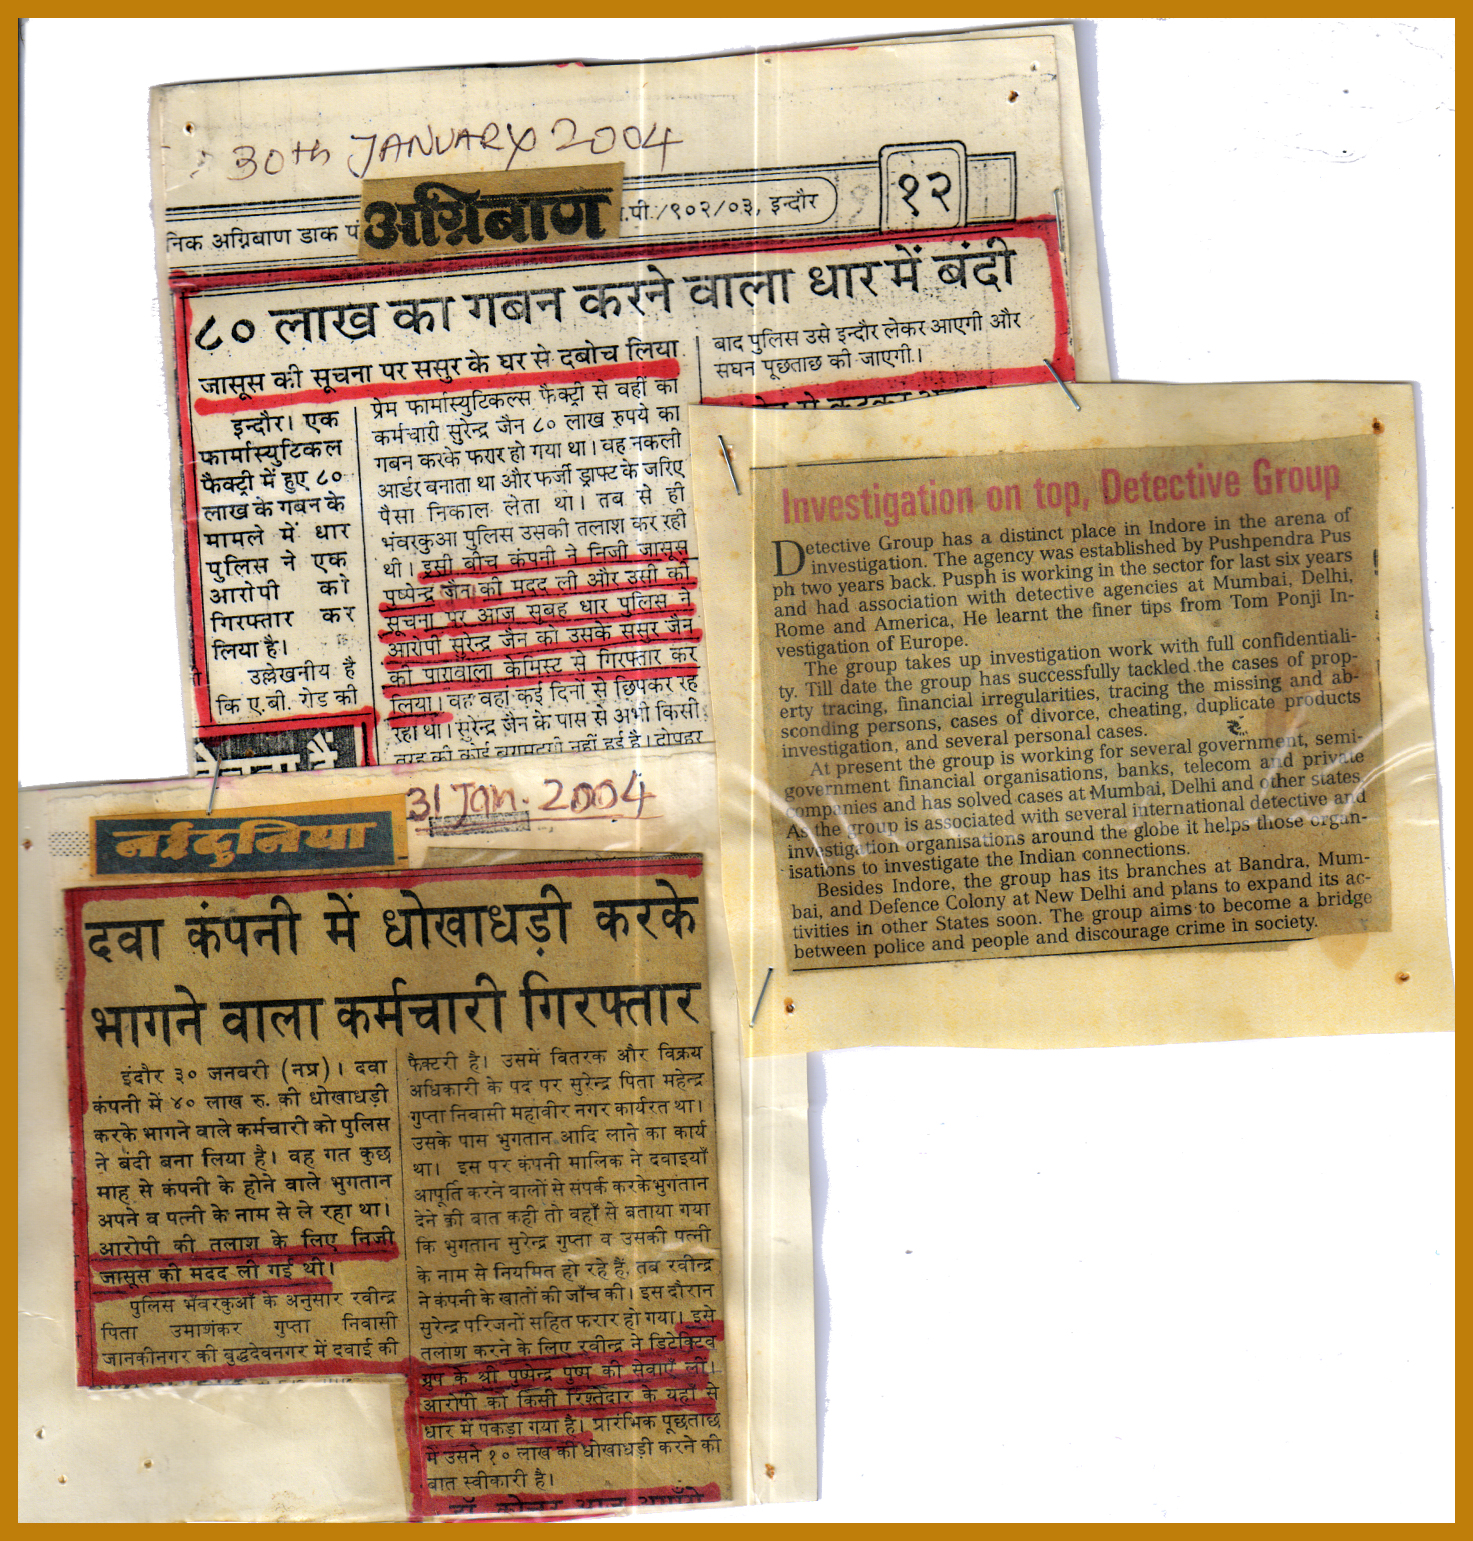 30th JANUARY 2004
निक अग्निबाण डाक पं
अग्निबाण
.पी./९०२/०३, इन्दौर
१२
८० लाख का गबन करने वाला धार में बंदी
जासूस की सूचना पर ससुर के घर से दबोच लिया
इन्दौर। एक
फार्मास्युटिकल
फैक्ट्री में हुए ८०
लाख के गबन के
मामले में धार
पुलिस ने एक
आरोपी को
गिरफ्तार कर
लिया है।
उल्लेखनीय है
कि ए.बी. रोड की
प्रेम फार्मास्युटिकल्स फैक्ट्री से वहीं का
कर्मचारी सुरेन्द्र जैन ८० लाख रुपये का
गबन करके फरार हो गया था। वह नकली
आर्डर बनाता था और फर्जी ड्राफ्ट के जरिए
पैसा निकाल लेता था। तब से ही
भंवरकुआ पुलिस उसकी तलाश कर रही
थी। इसी बीच कंपनी ने निजी जासूस
पुष्पेन्द्र जैन की मदद ली और उसी की
सूचना पर आज सुबह धार पुलिस ने
आरोपी सुरेन्द्र जैन को उसके ससुर जैन
की पारावाला केमिस्ट से गिरफ्तार कर
लिया। वह वहां कई दिनों से छिपकर रह
रहा था। सुरेन्द्र जैन के पास से अभी किसी
तरह की कोई बरामदगी नहीं हुई है। दोपहर
बाद पुलिस उसे इन्दौर लेकर आएगी और
सघन पूछताछ की जाएगी।
Investigation on top, Detective Group
Detective Group has a distinct place in Indore in the arena of
investigation. The agency was established by Pushpendra Pus
ph two years back. Pusph is working in the sector for last six years
and had association with detective agencies at Mumbai, Delhi,
Rome and America, He learnt the finer tips from Tom Ponji In-
vestigation of Europe.
The group takes up investigation work with full confidentiali-
ty. Till date the group has successfully tackled the cases of prop-
erty tracing, financial irregularities, tracing the missing and ab-
sconding persons, cases of divorce, cheating, duplicate products
investigation, and several personal cases.
At present the group is working for several government, semi-
government financial organisations, banks, telecom and private
companies and has solved cases at Mumbai, Delhi and other states.
As the group is associated with several international detective and
investigation organisations around the globe it helps those organ-
isations to investigate the Indian connections.
Besides Indore, the group has its branches at Bandra, Mum-
bai, and Defence Colony at New Delhi and plans to expand its ac-
tivities in other States soon. The group aims to become a bridge
between police and people and discourage crime in society.
31 Jan. 2004
नईदुनिया
दवा कंपनी में धोखाधड़ी करके
भागने वाला कर्मचारी गिरफ्तार
इंदौर ३० जनवरी (नप्र)। दवा
कंपनी में ४० लाख रु. की धोखाधड़ी
करके भागने वाले कर्मचारी को पुलिस
ने बंदी बना लिया है। वह गत कुछ
माह से कंपनी के होने वाले भुगतान
अपने व पत्नी के नाम से ले रहा था।
आरोपी की तलाश के लिए निजी
जासूस की मदद ली गई थी।
पुलिस भँवरकुआँ के अनुसार रवीन्द्र
पिता उमाशंकर गुप्ता निवासी
जानकीनगर की बुद्धदेवनगर में दवाई की
फैक्टरी है। उसमें वितरक और विक्रय
अधिकारी के पद पर सुरेन्द्र पिता महेन्द्र
गुप्ता निवासी महावीर नगर कार्यरत था।
उसके पास भुगतान आदि लाने का कार्य
था। इस पर कंपनी मालिक ने दवाइयाँ
आपूर्ति करने वालों से संपर्क करके भुगतान
देने की बात कही तो वहाँ से बताया गया
कि भुगतान सुरेन्द्र गुप्ता व उसकी पत्नी
के नाम से नियमित हो रहे हैं, तब रवीन्द्र
ने कंपनी के खातों की जाँच की। इस दौरान
सुरेन्द्र परिजनों सहित फरार हो गया। इसे
तलाश करने के लिए रवीन्द्र ने डिटेक्टिव
ग्रुप के श्री पुष्पेन्द्र पुष्प की सेवाएँ लीं।
आरोपी को किसी रिश्तेदार के यहाँ से
धार में पकड़ा गया है। प्रारंभिक पूछताछ
में उसने १० लाख की धोखाधड़ी करने की
बात स्वीकारी है।